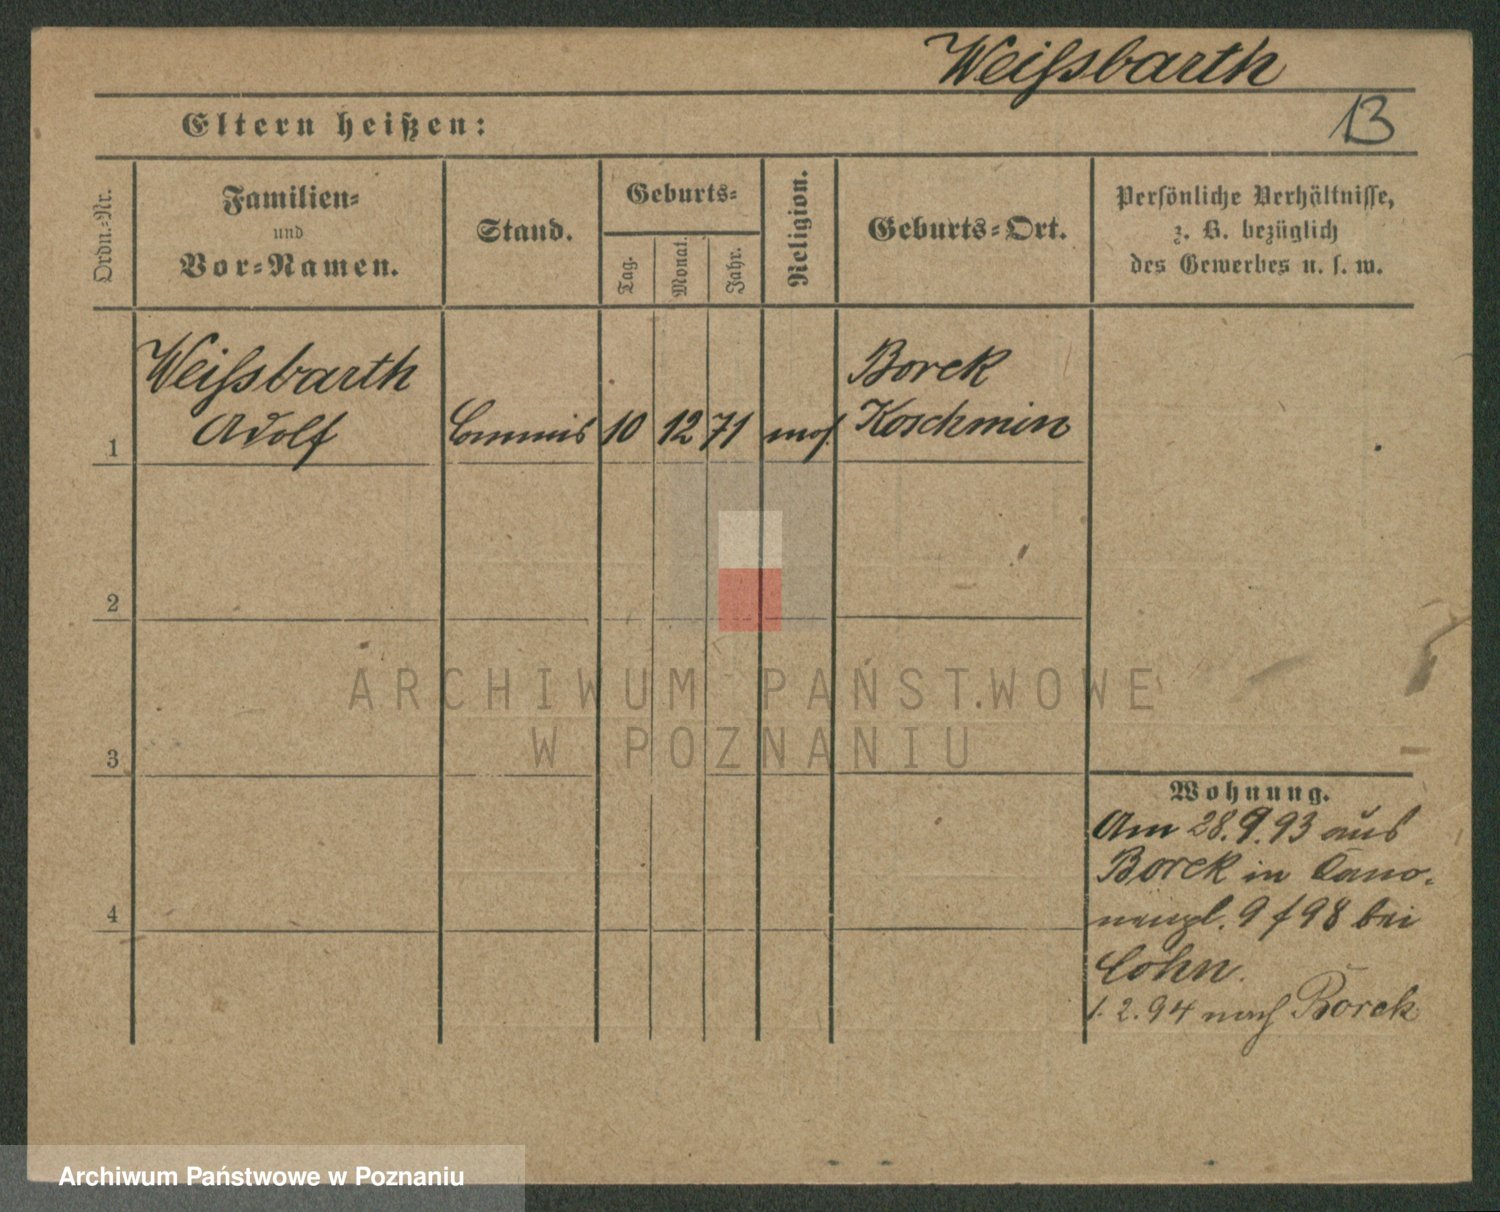 Weißbarth
13
Eltern heißen:
Ordn.-Nr.
Familien-
und
Vor-Namen.
Stand.
Geburts-
Tag.
Monat.
Jahr.
Religion.
Geburts-Ort.
Persönliche Verhältnisse,
z. B. bezüglich
des Gewerbes u. s. w.
Weißbarth
Adolf
Borek
1 Commis 10 12 71 mos. Koschmin
2
3
4
ARCHIWUM PAŃSTWOWE
W POZNANIU
Wohnung.
Am 28.9.93 aus
Borek in Cano-
nenpl. 9 f 98 bei
Cohn.
1.2.94 nach Borek
Archiwum Państwowe w Poznaniu